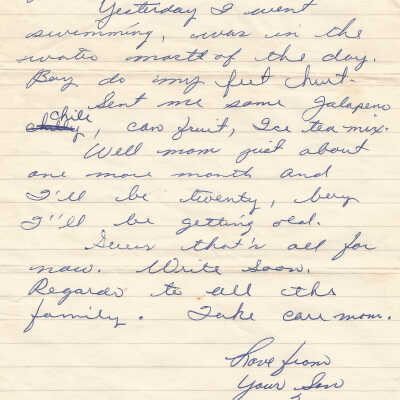 Yesterday I went
swimming, was in the
water most of the day.
Boy do my feet hurt.
Sent me some Jalapeno
chile, can fruit, Ice tea mix.
Well mom just about
one more month and
I'll be twenty, boy
I'll be getting old.
Guess that's all for
now. Write Soon.
Regards to all the
family. Take care mom.
Love from
Your Son